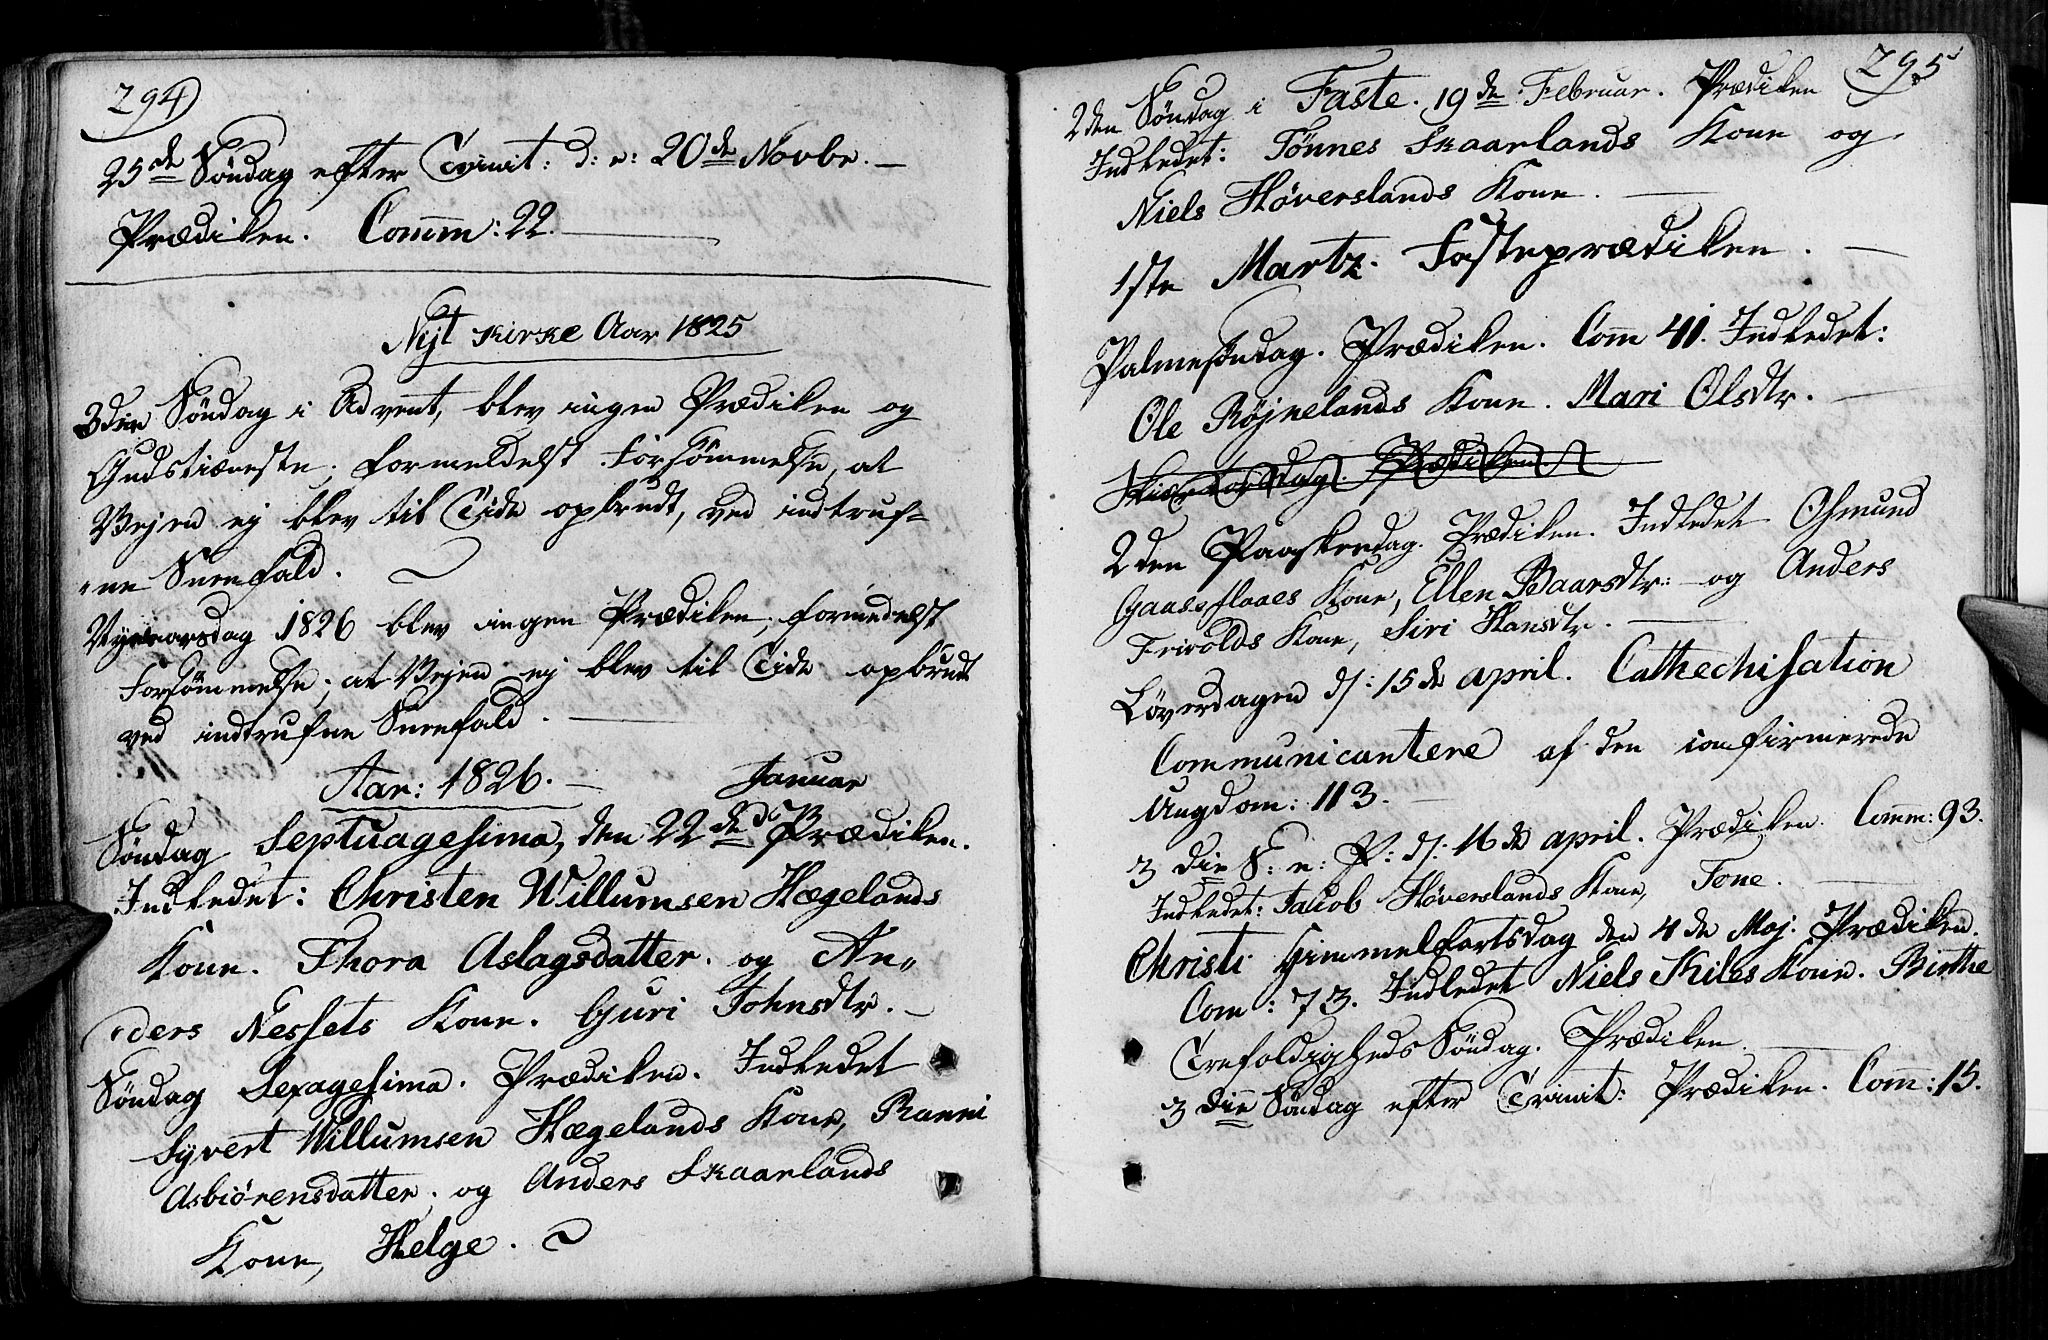 294
25de Søndag efter Trinit: d: e: 20de Novbr. —
Prædiken. Comm: 22.
Nyt Kirke Aar 1825
3die Søndag i Advent, blev ingen Prædiken og
Gudstieneste, formeldelst Forsømmelse, at
Vejen ej blev til Tide opbrudt, ved indtruf-
ne Sneefald.
Nyeaarsdag 1826 blev ingen Prædiken, formedelst
Forsømmelse, at Vejen ej blev til Tide opbrudt
ved indtrufne Sneefald.
Aar: 1826. — Januar
Søndag Septuagesima, den 22de Prædiken.
Indledet: Christen Willumsen Hægelands
Kone. Thora Aslagsdatter. og An„
„ders Nessets Kone. Guri Johnsdtr. —
Søndag Sexagesima. Prædiken. Indledet
Syvert Willumsen Hægelands Kone, Ranni
Asbiörensdatter. og Anders Skaarlands
Kone, Helge.
295
2den Søndag i Faste. 19de Februar. Prædiken
Indledet: Tönnes Skaarlands Kone og
Niels Høverslands Kone. —
1ste Martz. Fasteprædiken. —
Palmesøndag. Prædiken. Com 41. Indledet:
Ole Røjnelands Kone. Mari Olsdtr. —
Skiertorsdag. Prædiken.
2den Paaskedag. Prædiken. Indledet Osmund
Gaasflaaes Kone, Ellen Baarsdtr: — og Anders
Frivolds Kone, Siri Hansdtr. —
Løverdagen d: 15de april. Cathechisation
Communicantere af den confirmerede
Ungdom: 113. —
3die S: e: P: d: 16de april. Prædiken. Comm: 93.
Indledet: Jacob Høverslands Kone, Tone. —
Christi Himmelfartsdag den 4de Maj. Prædiken.
Com: 73. Indledet Niels Kiles Kone. Birthe
Trefoldigheds Søndag. Prædiken. —
3die Søndag efter Trinit: Prædiken. Comm: 15.